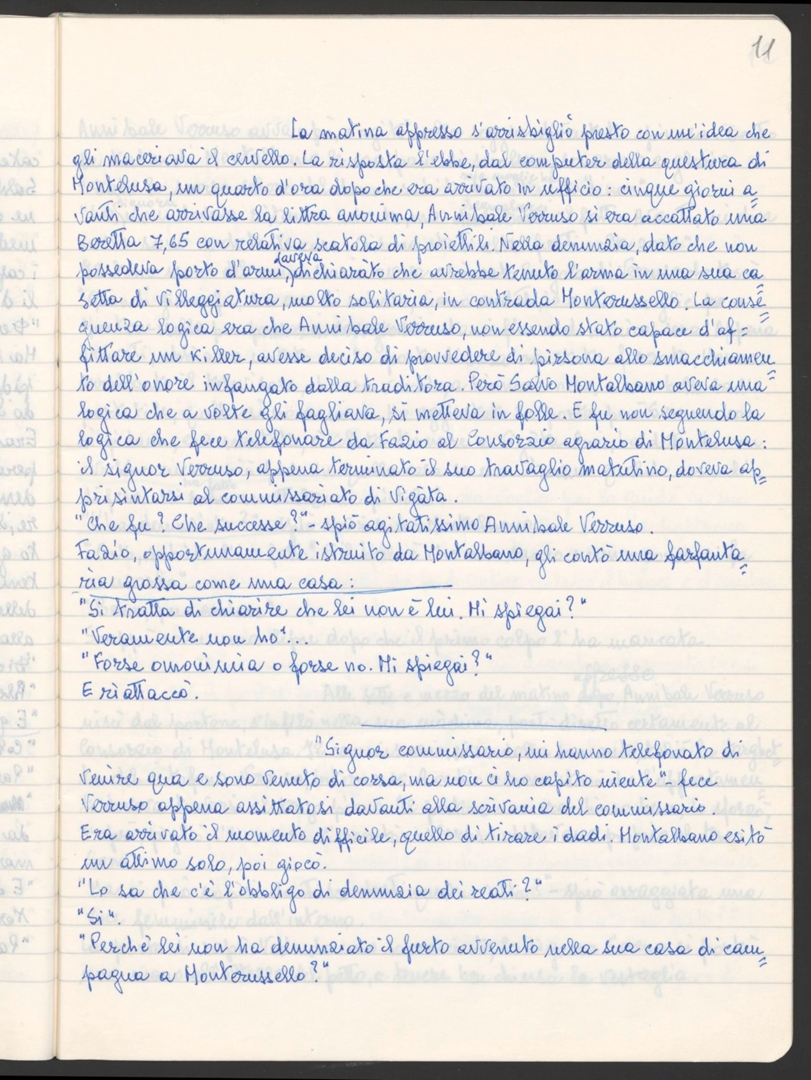 11
La matina appresso s'arrisbigliò presto con un'idea che
gli maceriava il cervello. La risposta l'ebbe, dal computer della questura di
Montelusa, un quarto d'ora dopo che era arrivato in ufficio: cinque giorni a
vanti che arrivasse la littra anonima, Annibale Verruso si era accattato una
Beretta 7,65 con relativa scatola di proiettili. Nella denunzia, dato che non
possedeva porto d'armi, aveva dichiarato che avrebbe tenuto l'arma in una sua ca
setta di villeggiatura, molto solitaria, in contrada Monterussello. La conse=
quenza logica era che Annibale Verruso, non essendo stato capace d'af=
fittare un killer, avesse deciso di provvedere di pirsona allo smacchiamen
to dell'onore infangato dalla traditora. Però Salvo Montalbano aveva una=
logica che a volte gli fagliava, si metteva in folle. E fu non seguendo la
logica che fece telefonare da Fazio al Consorzio agrario di Montelusa:
il signor Verruso, appena terminato il suo travaglio matutino, doveva ap=
prisintarsi al commissariato di Vigàta.
"Che fu? Che successe?" - spiò agitatissimo Annibale Verruso.
Fazio, opportunamente istruito da Montalbano, gli contò una farfanta=
ria grossa come una casa:
"Si tratta di chiarire che lei non è lui. Mi spiegai?"
"Veramente non ho"...
"Forse omonimia o forse no. Mi spiegai?"
E riattaccò.
"Signor commissario, mi hanno telefonato di
venire qua e sono venuto di corsa, ma non ci ho capito niente" - fece
Verruso appena assittatosi davanti alla scrivania del commissario
Era arrivato il momento difficile, quello di tirare i dadi. Montalbano esitò
un attimo solo, poi giocò.
"Lo sa che c'è l'obbligo di denunzia dei reati?"
"Sì".
"Perchè lei non ha denunziato il furto avvenuto nella sua casa di cam=
pagna a Monterussello?"